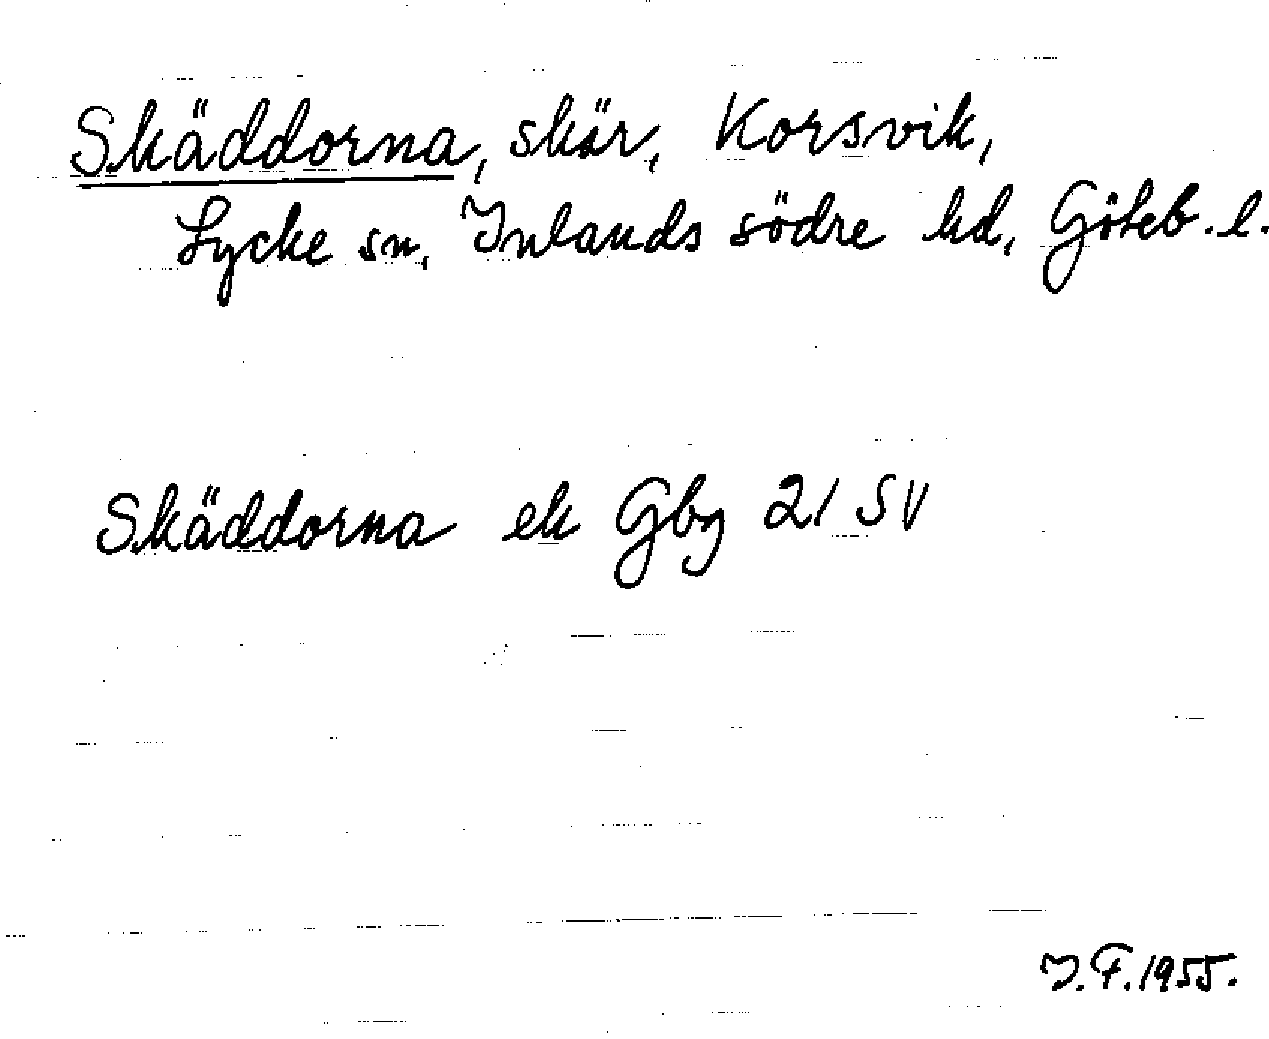 Skäddorna, skär, Korsvik,
Lycke sn, Inlands södre hd, Göteb. l.
Skäddorna ek Gbg 21 SV
I. F. 1955.